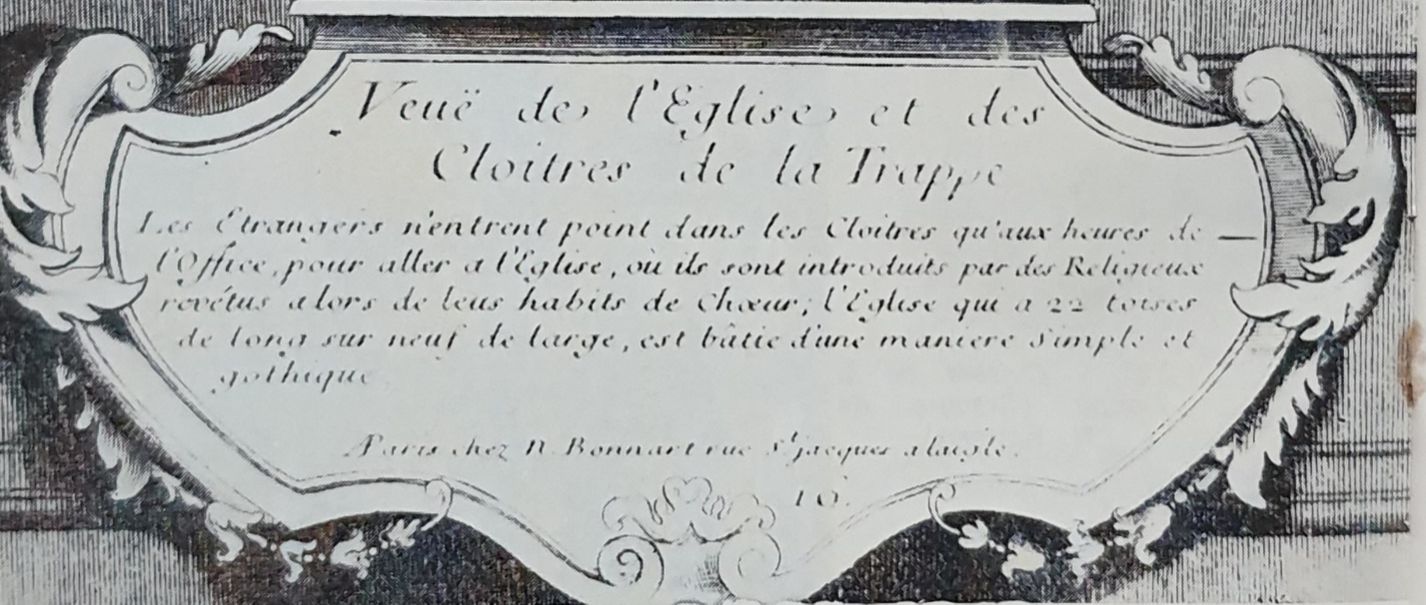 Veuë de l'Eglise et des
Cloitres de la Trappe
Les Etrangers n'entrent point dans les Cloitres qu'aux heures de —
l'Office, pour aller a l'Eglise, où ils sont introduits par des Religieux
revétus alors de leus habits de Chœur; l'Eglise qui a 22 toises
de long sur neuf de large, est bâtie d'une maniere simple et
gothique
A Paris chez N. Bonnart rue St. jacques a laigle.
16.